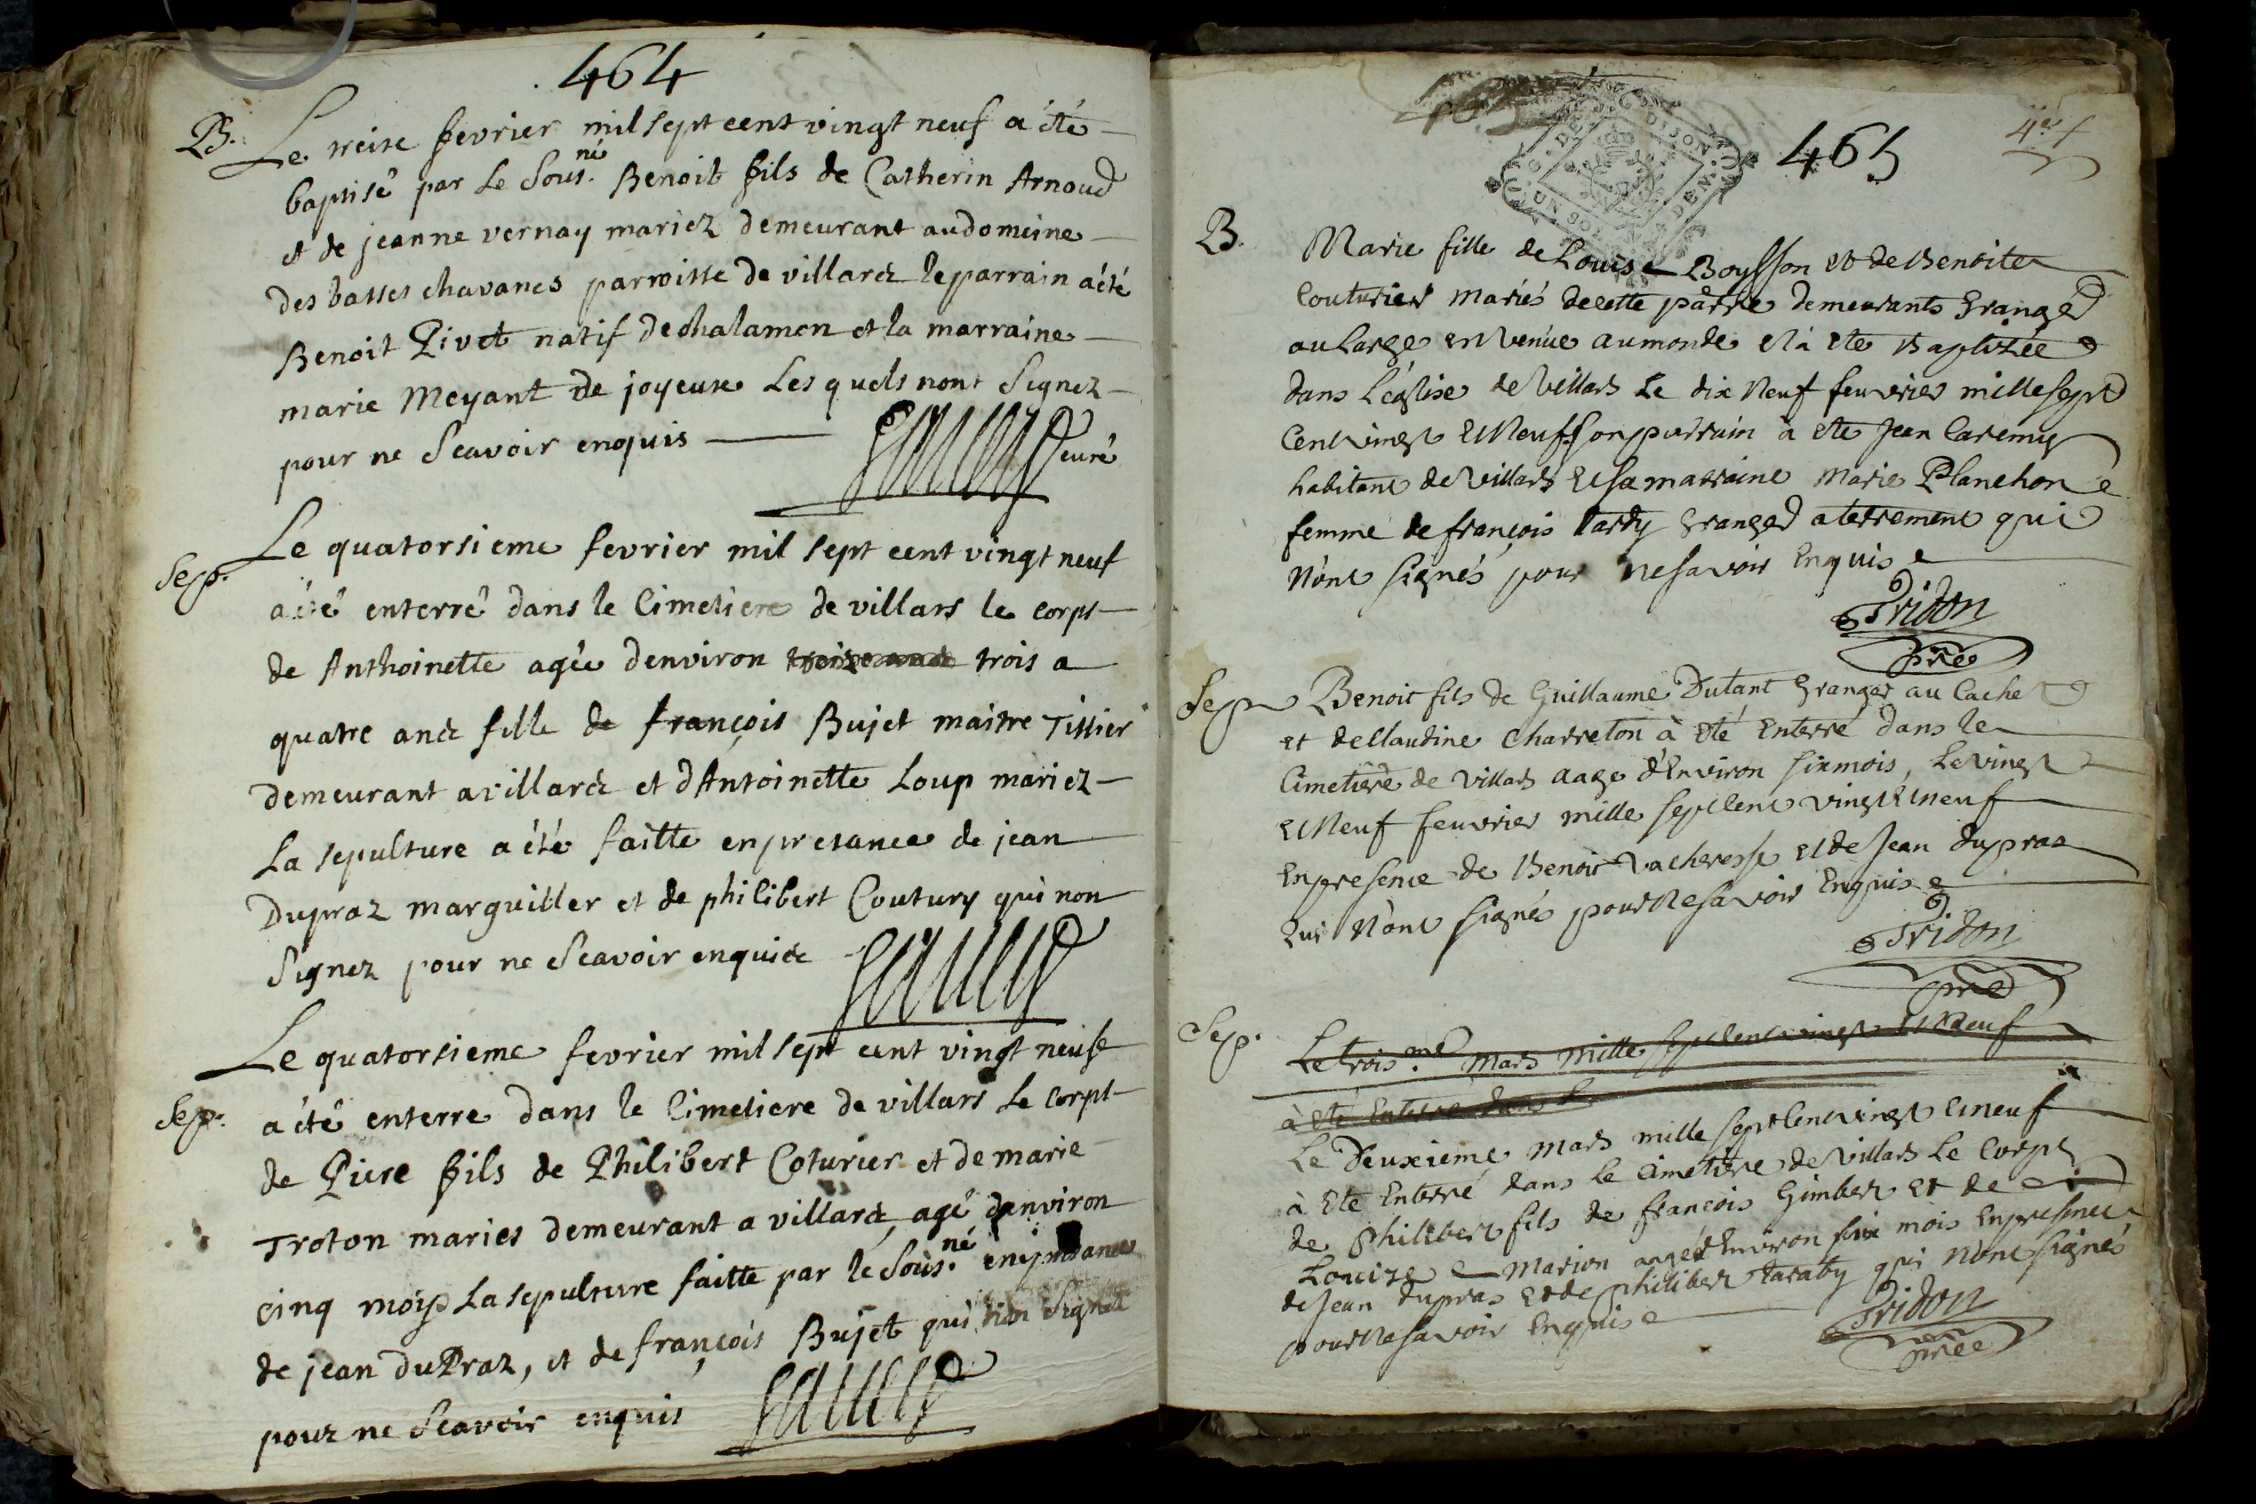 464
B. Le treize fevrier mil sept cent vingt neuf a été
baptisé par le Sous.né Benoit fils de Catherin Arnoud
et de jeanne vernay mariez demeurant au domeine
des basses chavanes parroisse de villars le parrain a été
Benoit Pivet natif de chalamon et la marraine
marie Meyant de joyeuse Les quels nont Signez
pour ne Scavoir enquis
curé
Sep. Le quatorsieme fevrier mil sept cent vingt neuf
a été enterré dans le Cimetiere de villars le corps
de Anthoinette agée denviron trois a
quatre ans fille de françois Bujet maitre Tissier
demeurant a villars et d'Antoinette Loup mariez
La sepulture a été faitte en presance de jean
Dupraz marguiller et de philibert Coutury qui non
Signez pour ne Scavoir enquis
Sep. Le quatorsieme fevrier mil sept cent vingt neufe
a été enterre dans le Cimetiere de villars Le corps
de Piere fils de Philibert Coturier et de marie
Troton maries demeurant a villars, agé denviron
cinq moys La sepulture faitte par le Sous.né en presance
de jean duPraz, et de françois Bujet qui non Signez
pour ne Scavoir enquis
G. DE DIJON
UN SOL DEN.
465
B. Marie fille de Louis Boysson et de Benoite
Couturier mariés de cette parrse demeurants Granger
au Large en Venüe au monde et à ete Baptizée
dans L'église de Villars Le dix Neuf feuvrier mille sept
Cent vingt et Neuf Son parrain à ete Jean Caremy
habitant de Villars et sa marraine Marie Planchon
femme de françois tardy Granger a terrement qui
N'ont signés pour ne savoir Enquis
Tridon
pre
Sep Benoit fils de Guillaume Dutant Granger au Cachet
et de Claudine Charreton à Eté Enterré dans le
Cimetiere de Villars aage d'Environ six mois, Le vingt
et Neuf feuvrier mille sept Cent vingt et neuf
En presence de Benoit Vacheresse et de Jean dupras
qui N'ont signés pour Ne savoir Enquis
Tridon
pre
Sep. Le trois.me Mars mille sept Cent vingt et Neuf
à eté Enterre dans le
Le Deuxieme Mars mille sept Cent vingt et neuf
à Eté Enterré dans Le Cimetiere de Villars Le Corps
de Philibert fils de françois Gimbert et de
Louize Marion aagé d'Environ six mois En presence
de Jean dupras et de philibert taraty qui N'ont signés
pour Ne savoir Enquis
Tridon
pre